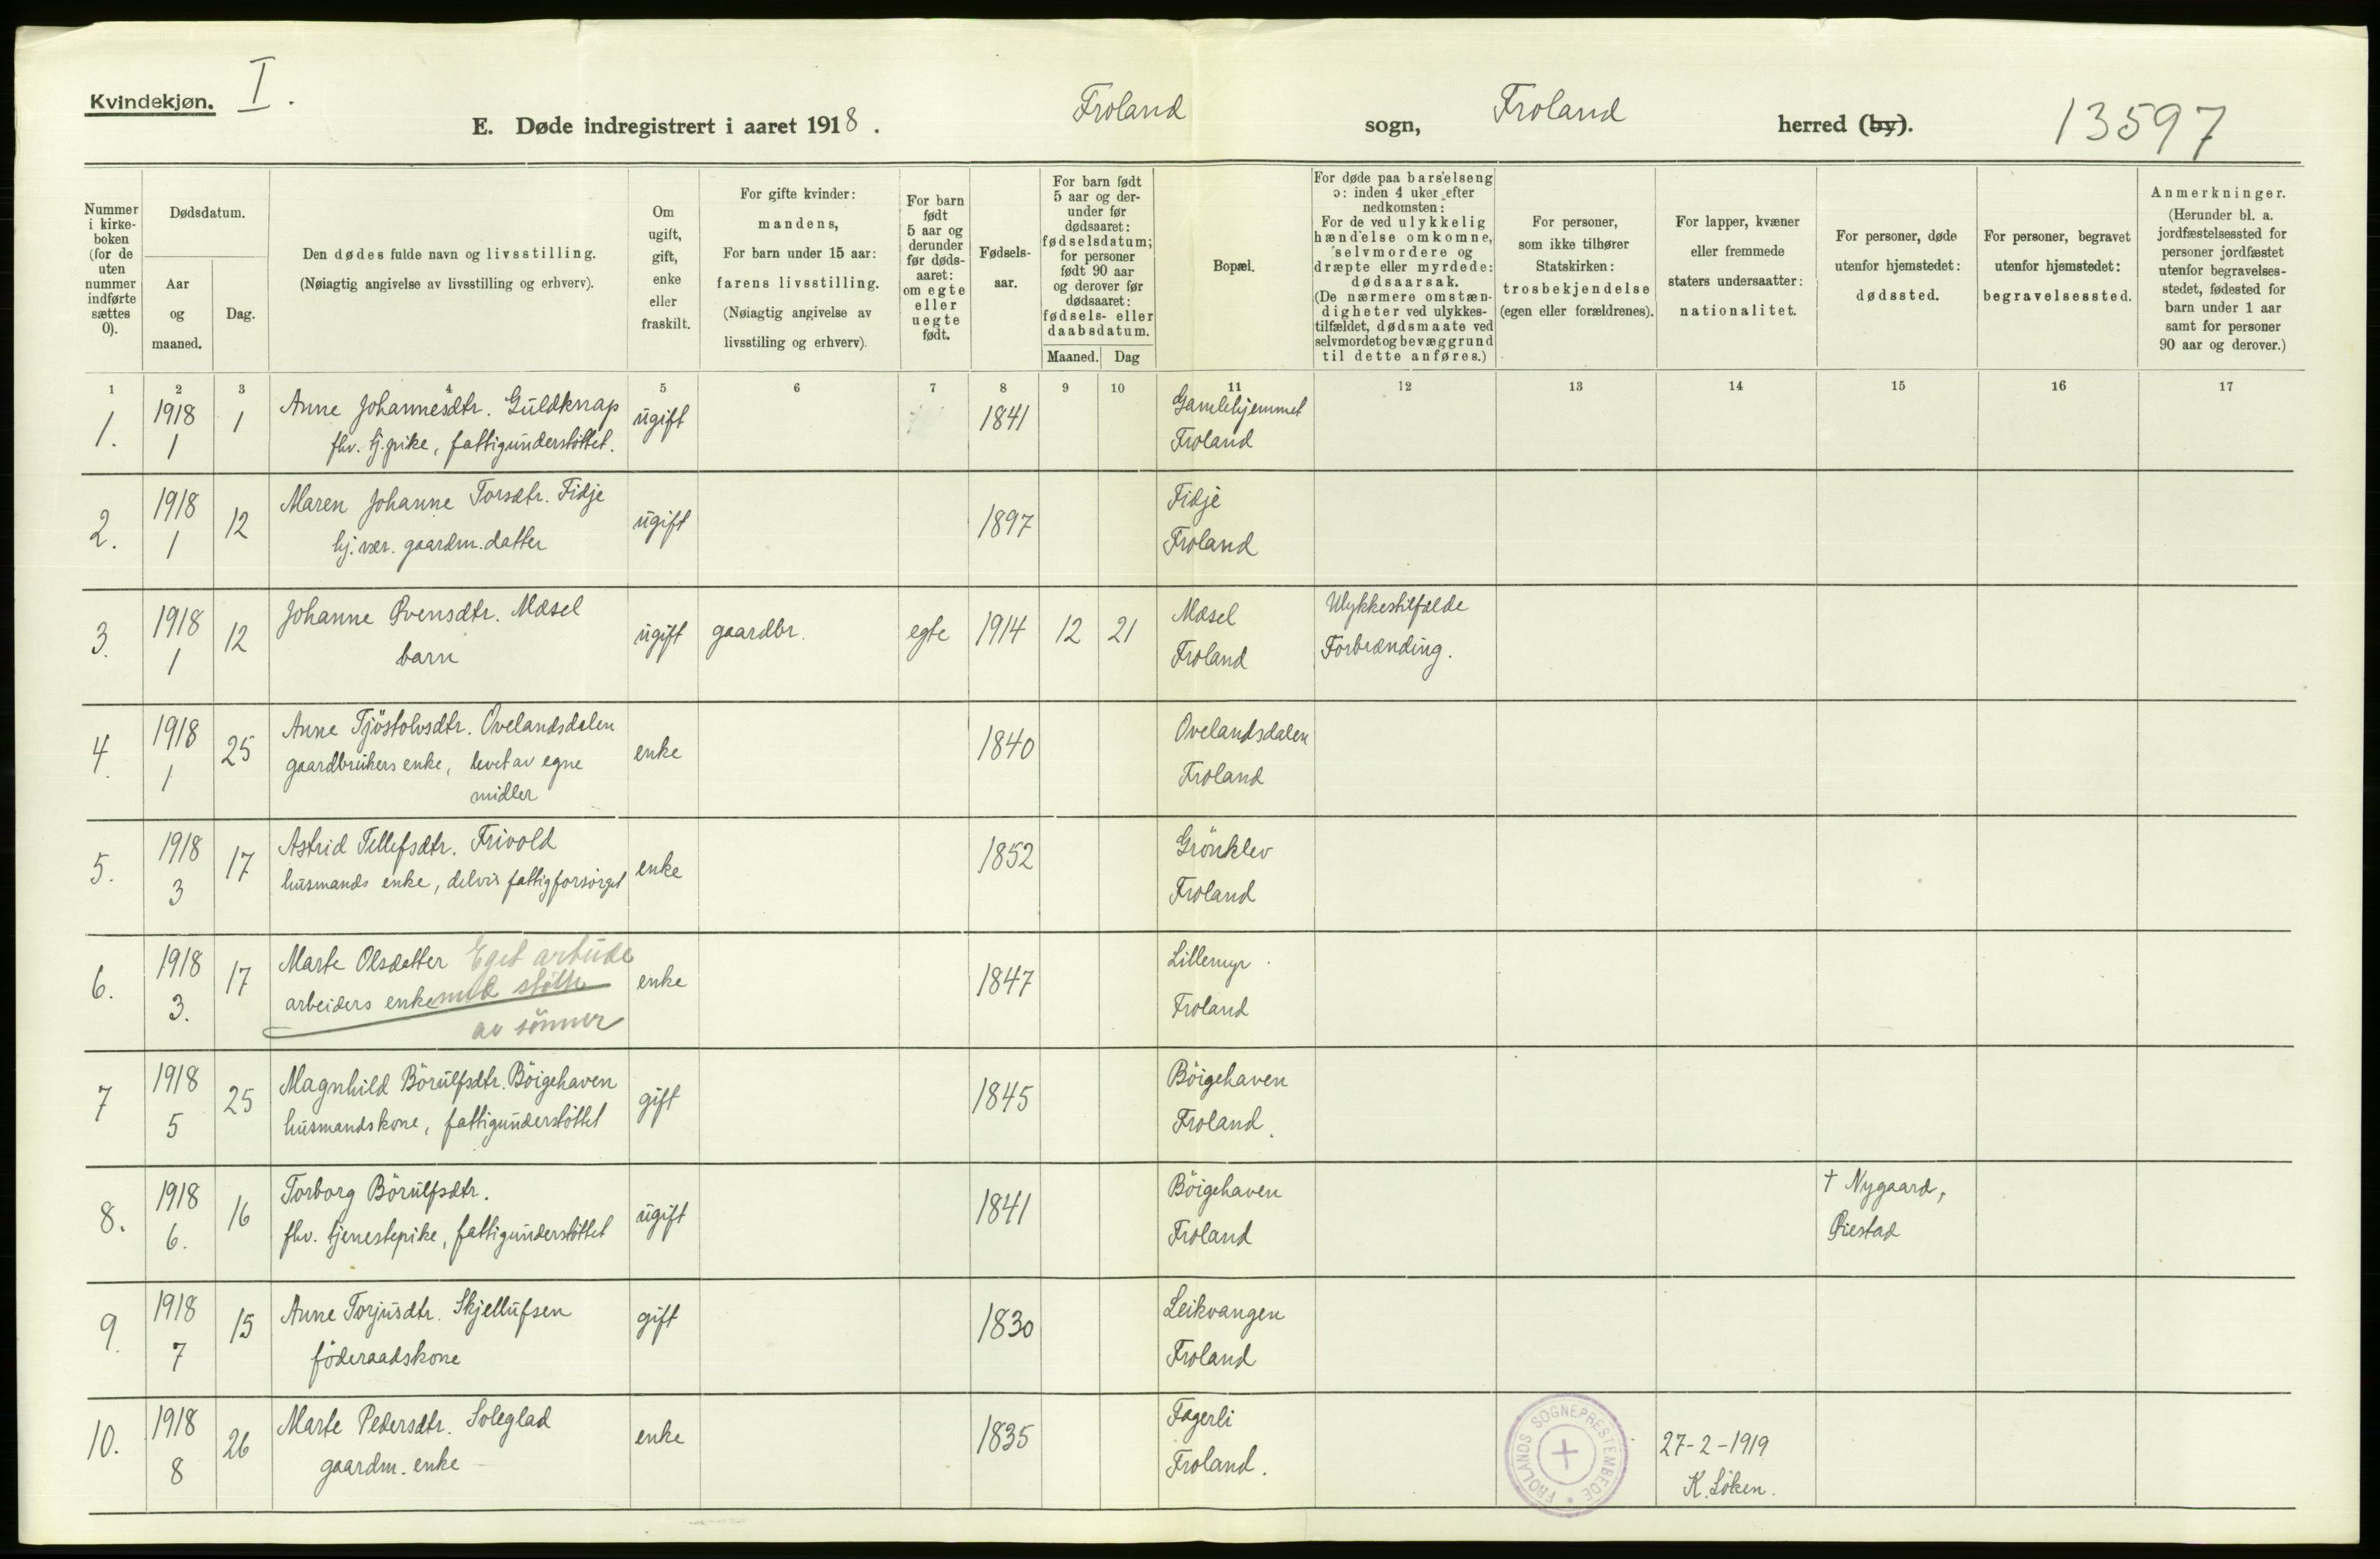 Kvindekjøn.
I.
E. Døde indregistrert i aaret 1918.
Froland sogn, Froland herred (by).
13597
Nummer i kirke-
boken
(for de
uten
nummer
indførte
sættes
0).
Dødsdatum.
Aar
og
maaned.
Dag.
Den dødes fulde navn og livsstilling.
(Nøiagtig angivelse av livsstilling og erhverv).
Om
ugift,
gift,
enke
eller
fraskilt.
For gifte kvinder:
mandens,
For barn under 15 aar:
farens livsstilling.
(Nøiagtig angivelse av
livsstiling og erhverv).
For barn
født
5 aar og
derunder
før døds-
aaret:
om egte
eller
uegte
født.
Fødsels-
aar.
For barn født
5 aar og der-
under før
dødsaaret:
fødselsdatum;
for personer
født 90 aar
og derover før
dødsaaret:
fødsels- eller
daabsdatum.
Maaned. Dag
Bopæl.
For døde paa barselseng
ɔ: inden 4 uker efter
nedkomsten:
For de ved ulykkelig
hændelse omkomne,
selvmordere og
dræpte eller myrdede:
dødsaarsak.
(De nærmere omstæn-
digheter ved ulykkes-
tilfældet, dødsmaate ved
selvmordet og bevæggrund
til dette anføres.)
For personer,
som ikke tilhører
Statskirken:
trosbekjendelse
(egen eller forældrenes).
For lapper, kvæner
eller fremmede
staters undersaatter:
nationalitet.
For personer, døde
utenfor hjemstedet:
dødssted.
For personer, begravet
utenfor hjemstedet:
begravelsessted.
Anmerkninger.
(Herunder bl. a.
jordfæstelsessted for
personer jordfæstet
utenfor begravelses-
stedet, fødested for
barn under 1 aar
samt for personer
90 aar og derover.)
1 2 3 4 5 6 7 8 9 10 11 12 13 14 15 16 17
1. 1918 1 Anne Johannesdtr. Guldknap ugift 1841 Gamlehjemmet
1 fhv. tj.pike, fattigunderstöttet. Froland
2. 1918 12 Maren Johanne Torsdtr. Fidje ugift 1897 Fidje
1 hj. vær. gaardm. datter Froland
3. 1918 12 Johanne Øvensdtr. Mæsel ugift gaardbr. egte 1914 12 21 Mæsel Ulykkestilfælde
1 barn Froland Forbrænding.
4. 1918 25 Anne Tjöstolvsdtr. Ovelandsdalen enke 1840 Ovelandsdalen
1 gaardbrukers enke, levet av egne Froland
midler
5. 1918 17 Astrid Tellefsdtr. Frivold enke 1852 Grönklev
3 husmands enke, delvis fattigforsörget Froland
6. 1918 17 Marte Olsdatter Eget arbeide enke 1847 Lillemyr
3. arbeiders enke med stötte Froland
av sönner
7 1918 25 Magnhild Börulfsdtr. Böigehaven gift 1845 Böigehaven
5 husmandskone, fattigunderstöttet Froland.
8. 1918 16 Torborg Börulfsdtr. ugift 1841 Böigehaven † Nygaard,
6. fhv. tjenestepike, fattigunderstöttet Froland Øiestad
9. 1918 15 Anne Torjusdtr. Skjellufsen gift 1830 Leikvangen
7 föderaadskone Froland
10. 1918 26 Marte Pedersdtr. Soleglad enke 1835 Fagerli
8 gaardm. enke Froland.
FROLANDS SOGNEPRESTEMBEDE
27-2-1919
K. Löken.